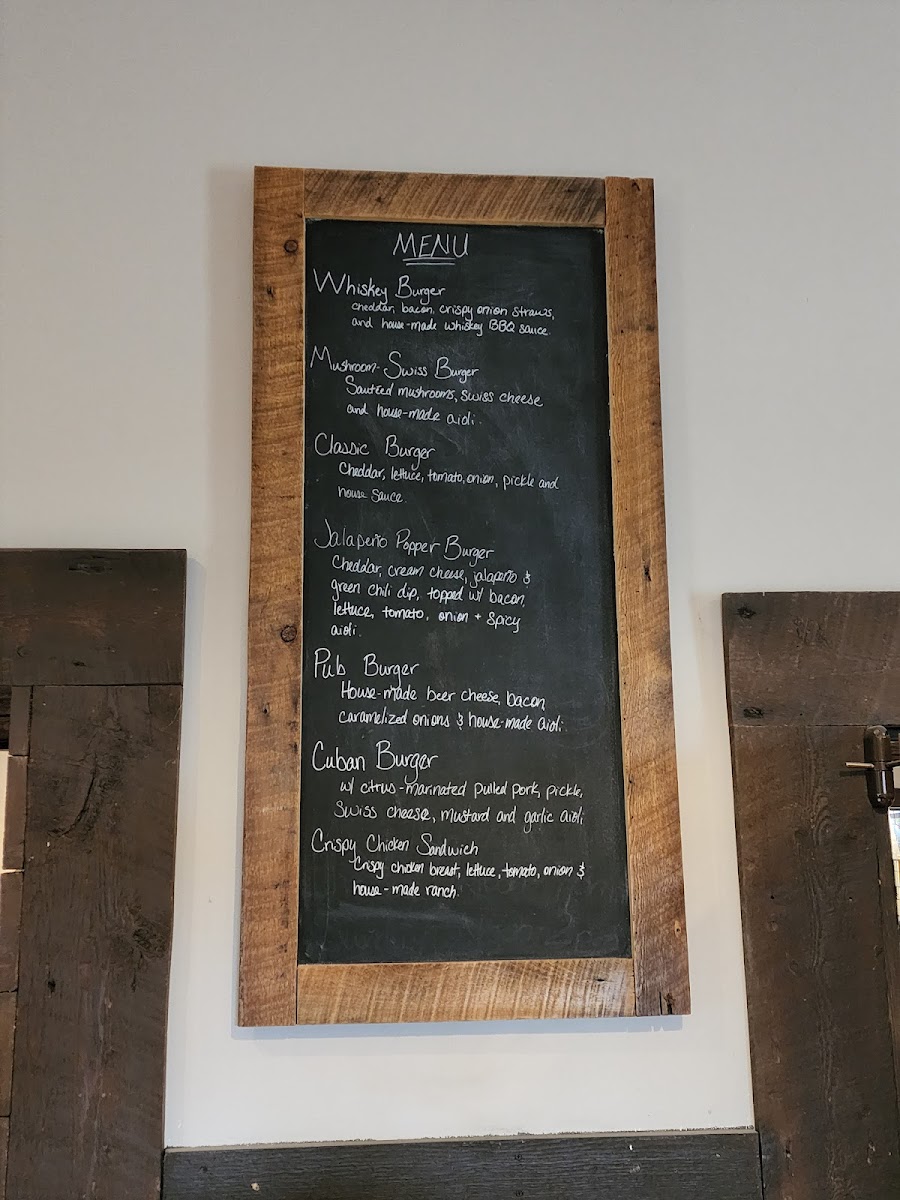 MENU
Whiskey Burger
cheddar, bacon, crispy onion straws,
and house-made whiskey BBQ sauce.
Mushroom-Swiss Burger
Sautéed mushrooms, swiss cheese
and house-made aioli.
Classic Burger
Cheddar, lettuce, tomato, onion, pickle and
house sauce.
Jalapeño Popper Burger
Cheddar, cream cheese, jalapeño &
green chili dip, topped w/ bacon,
lettuce, tomato, onion + spicy
aioli.
Pub Burger
House-made beer cheese, bacon,
caramelized onions & house-made aioli.
Cuban Burger
w/ citrus-marinated pulled pork, pickle,
Swiss cheese, mustard and garlic aioli
Crispy Chicken Sandwich
Crispy chicken breast, lettuce, tomato, onion &
house-made ranch.